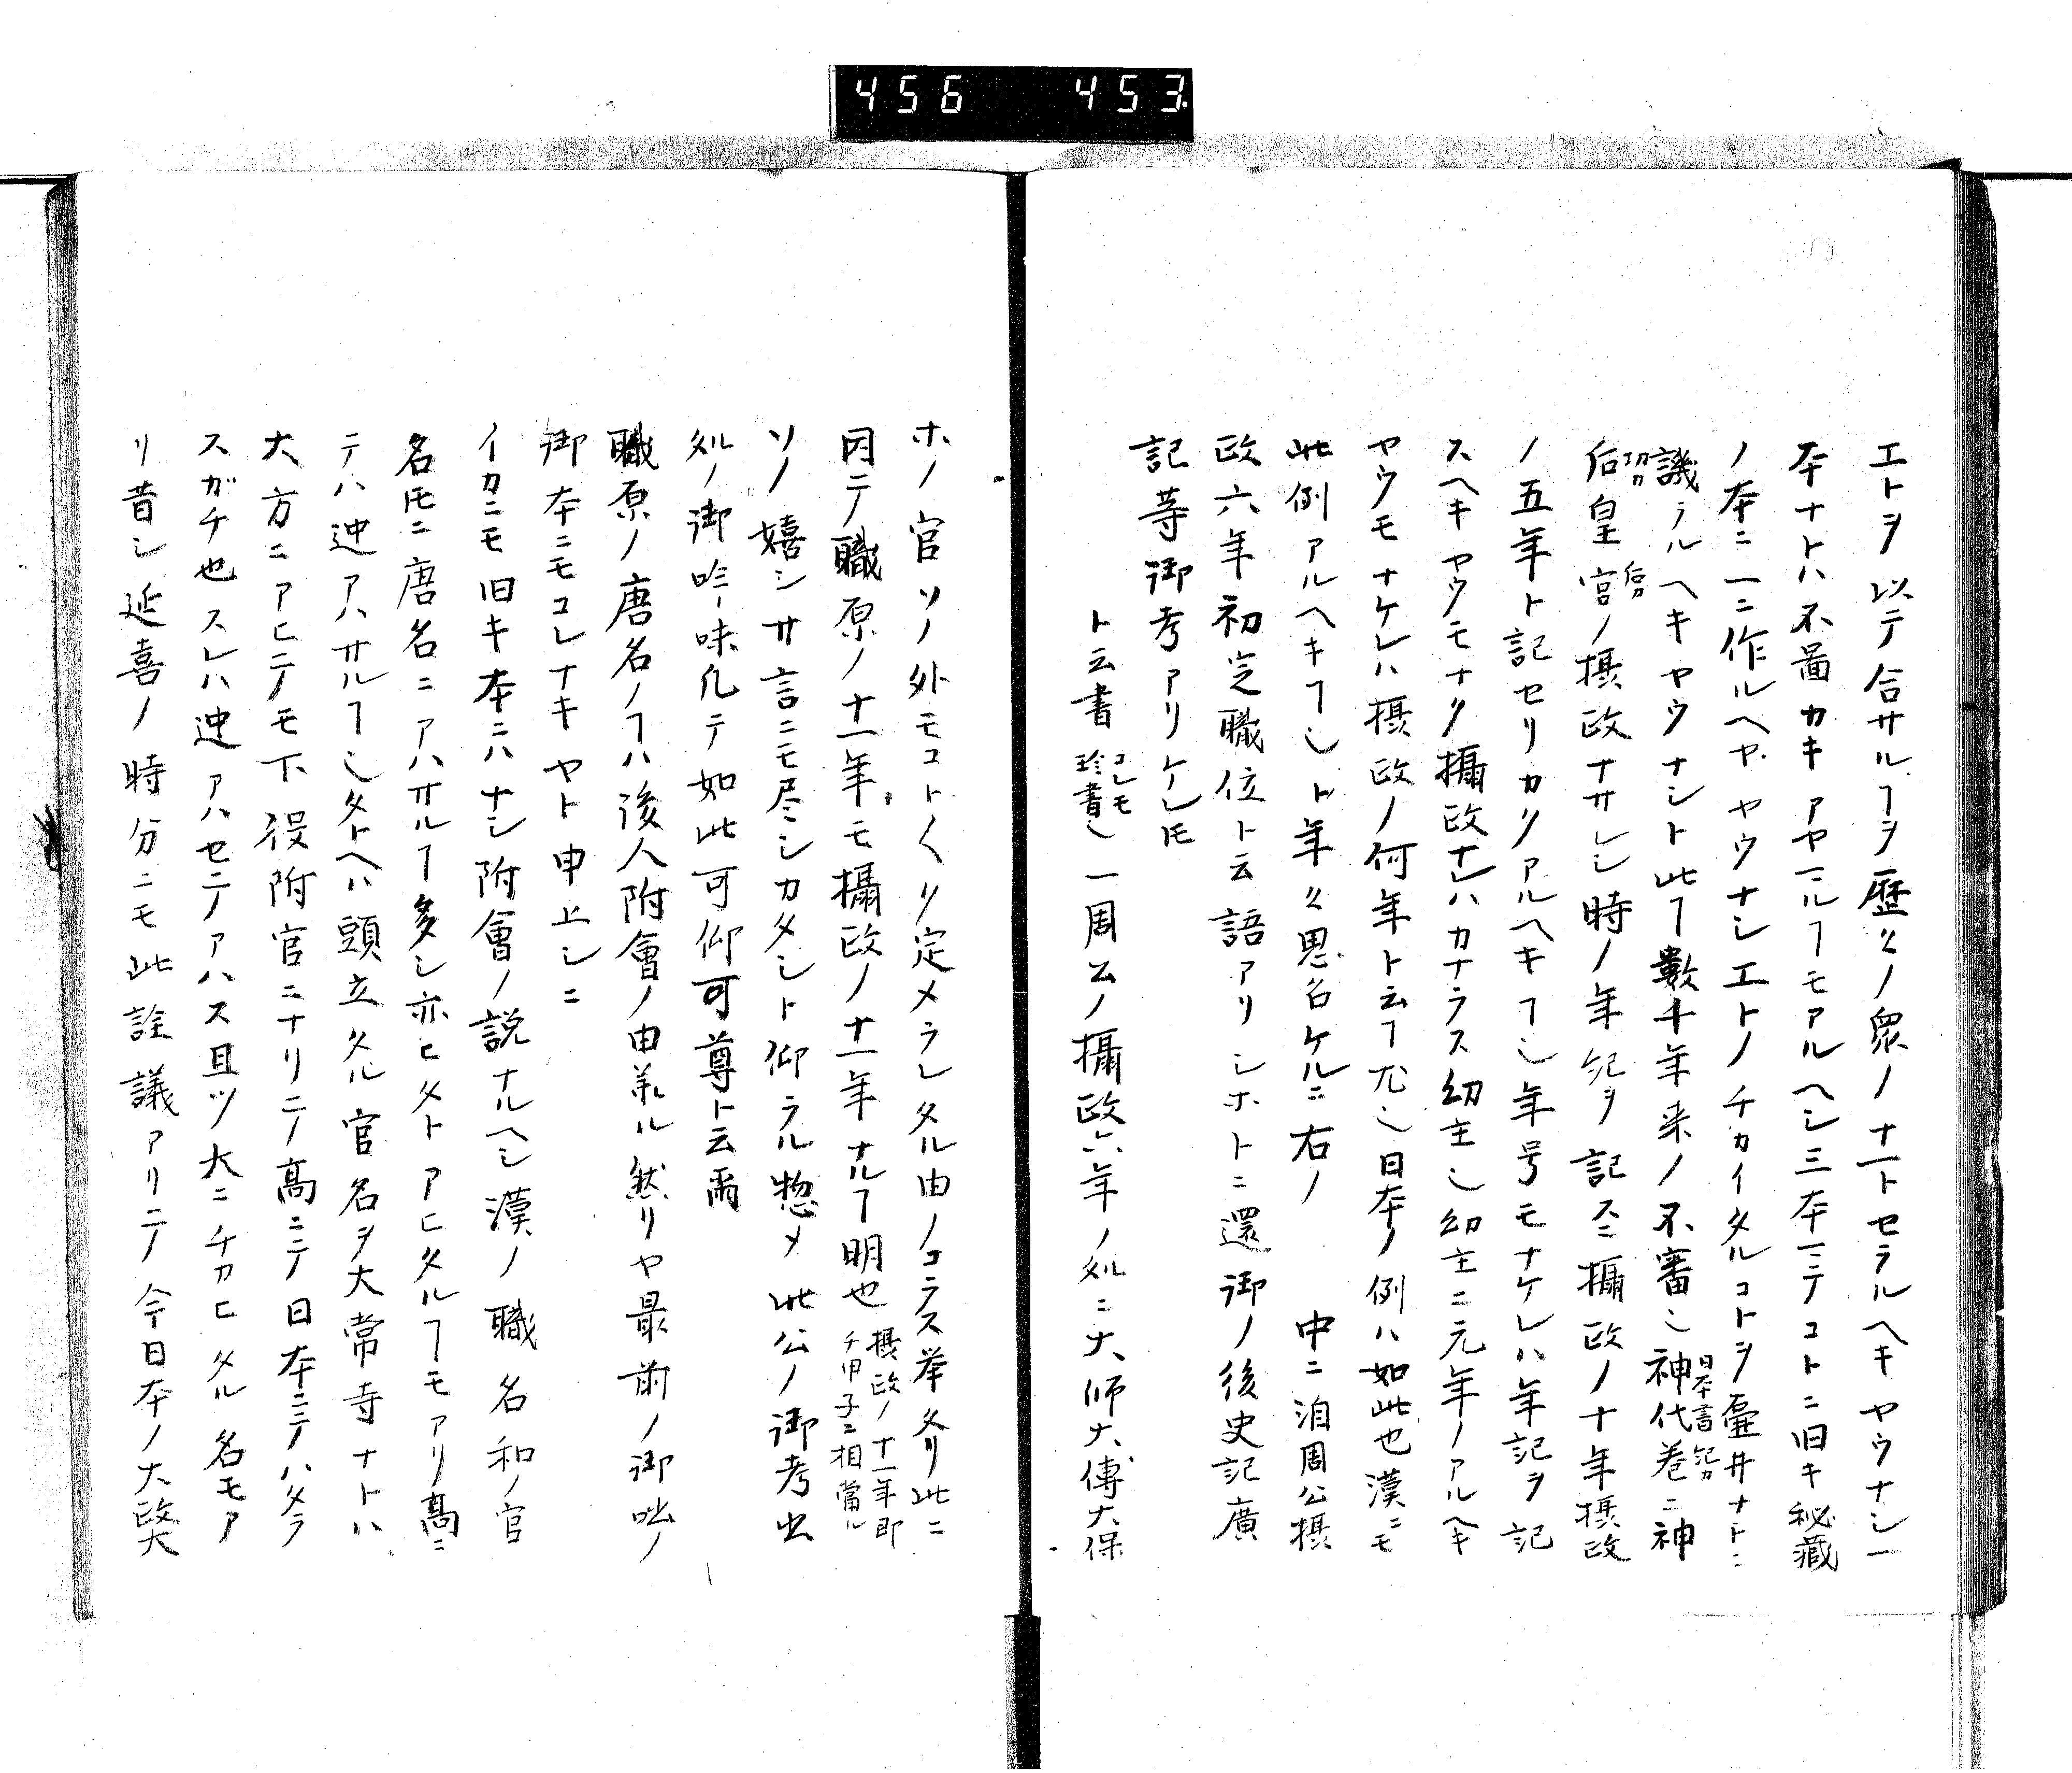 456 453
エトヲ以テ合サルヿヲ歴々ノ衆ノナトセラルヘキヤウナシ一
本ナトハ不図カキアヤマルヿモアルヘシ三本マテコトニ旧キ秘蔵
ノ本ニ一ニ作ルヘキヤウナシエトノチカイタルコトヲ壷井ナトニ
譏ラルヘキヤウナシト此ヿ數千年来ノ不審也神代巻ニ神
日本書紀カ
后皇宮ノ摂政ナサレシ時ノ年紀ヲ記スニ攝政ノ十年摂政
功カ
后カ
ノ五年ト記セリカクアルヘキヿ也年号モナケレハ年記ヲ記
スヘキヤウモナク攝政ナレハカナラス幼主也幼主ニ元年ノアルヘキ
ヤウモナケレハ摂政ノ何年ト云ヿ尤也日本ノ例ハ如此也漢ニモ
此例アルヘキヿ也ト年々思召ケルニ右ノ 中ニ洎周公摂
政六年初定職位ト云語アリシホトニ還御ノ後史記廣
記等御考アリケレ𪜈
ト云書 コレモ珍書也 一周公ノ攝政六年ノ処ニ大師大傅大保
ホノ官ソノ外モコト〱ク定メラレタル由ノコラス挙タリ此ニ
因テ職原ノ十一年モ攝政ノ十一年ナルヿ明也 摂政ノ十一年即チ甲子ニ相當ル
ソノ嬉シサ言ニモ尽シカタシト仰ラル惣メ此公ノ御考出
処ノ御吟味凡テ如此可仰可尊ト云爾
職原ノ唐名ノヿハ後人附會ノ由承ル然リヤ最前ノ御咄ノ
御本ニモコレナキヤト申上シニ
イカニモ旧キ本ニハナシ附會ノ説ナルヘシ漢ノ職名和ノ官
名𪜈ニ唐名ニアハサルヿ多シ亦ヒタトアヒタルヿモアリ高ニ
テハ迚アハサルヿ也タトヘハ頭立タル官名ヲ大常寺ナトハ
大方ニアヒテモ下役附官ニナリテ高ニテ日本ニテハタラ
スガチ也スレハ迚アハセテアハス且ツ大ニチカヒタル名モア
リ昔シ延喜ノ時分ニモ此詮議アリテ今日本ノ大政大